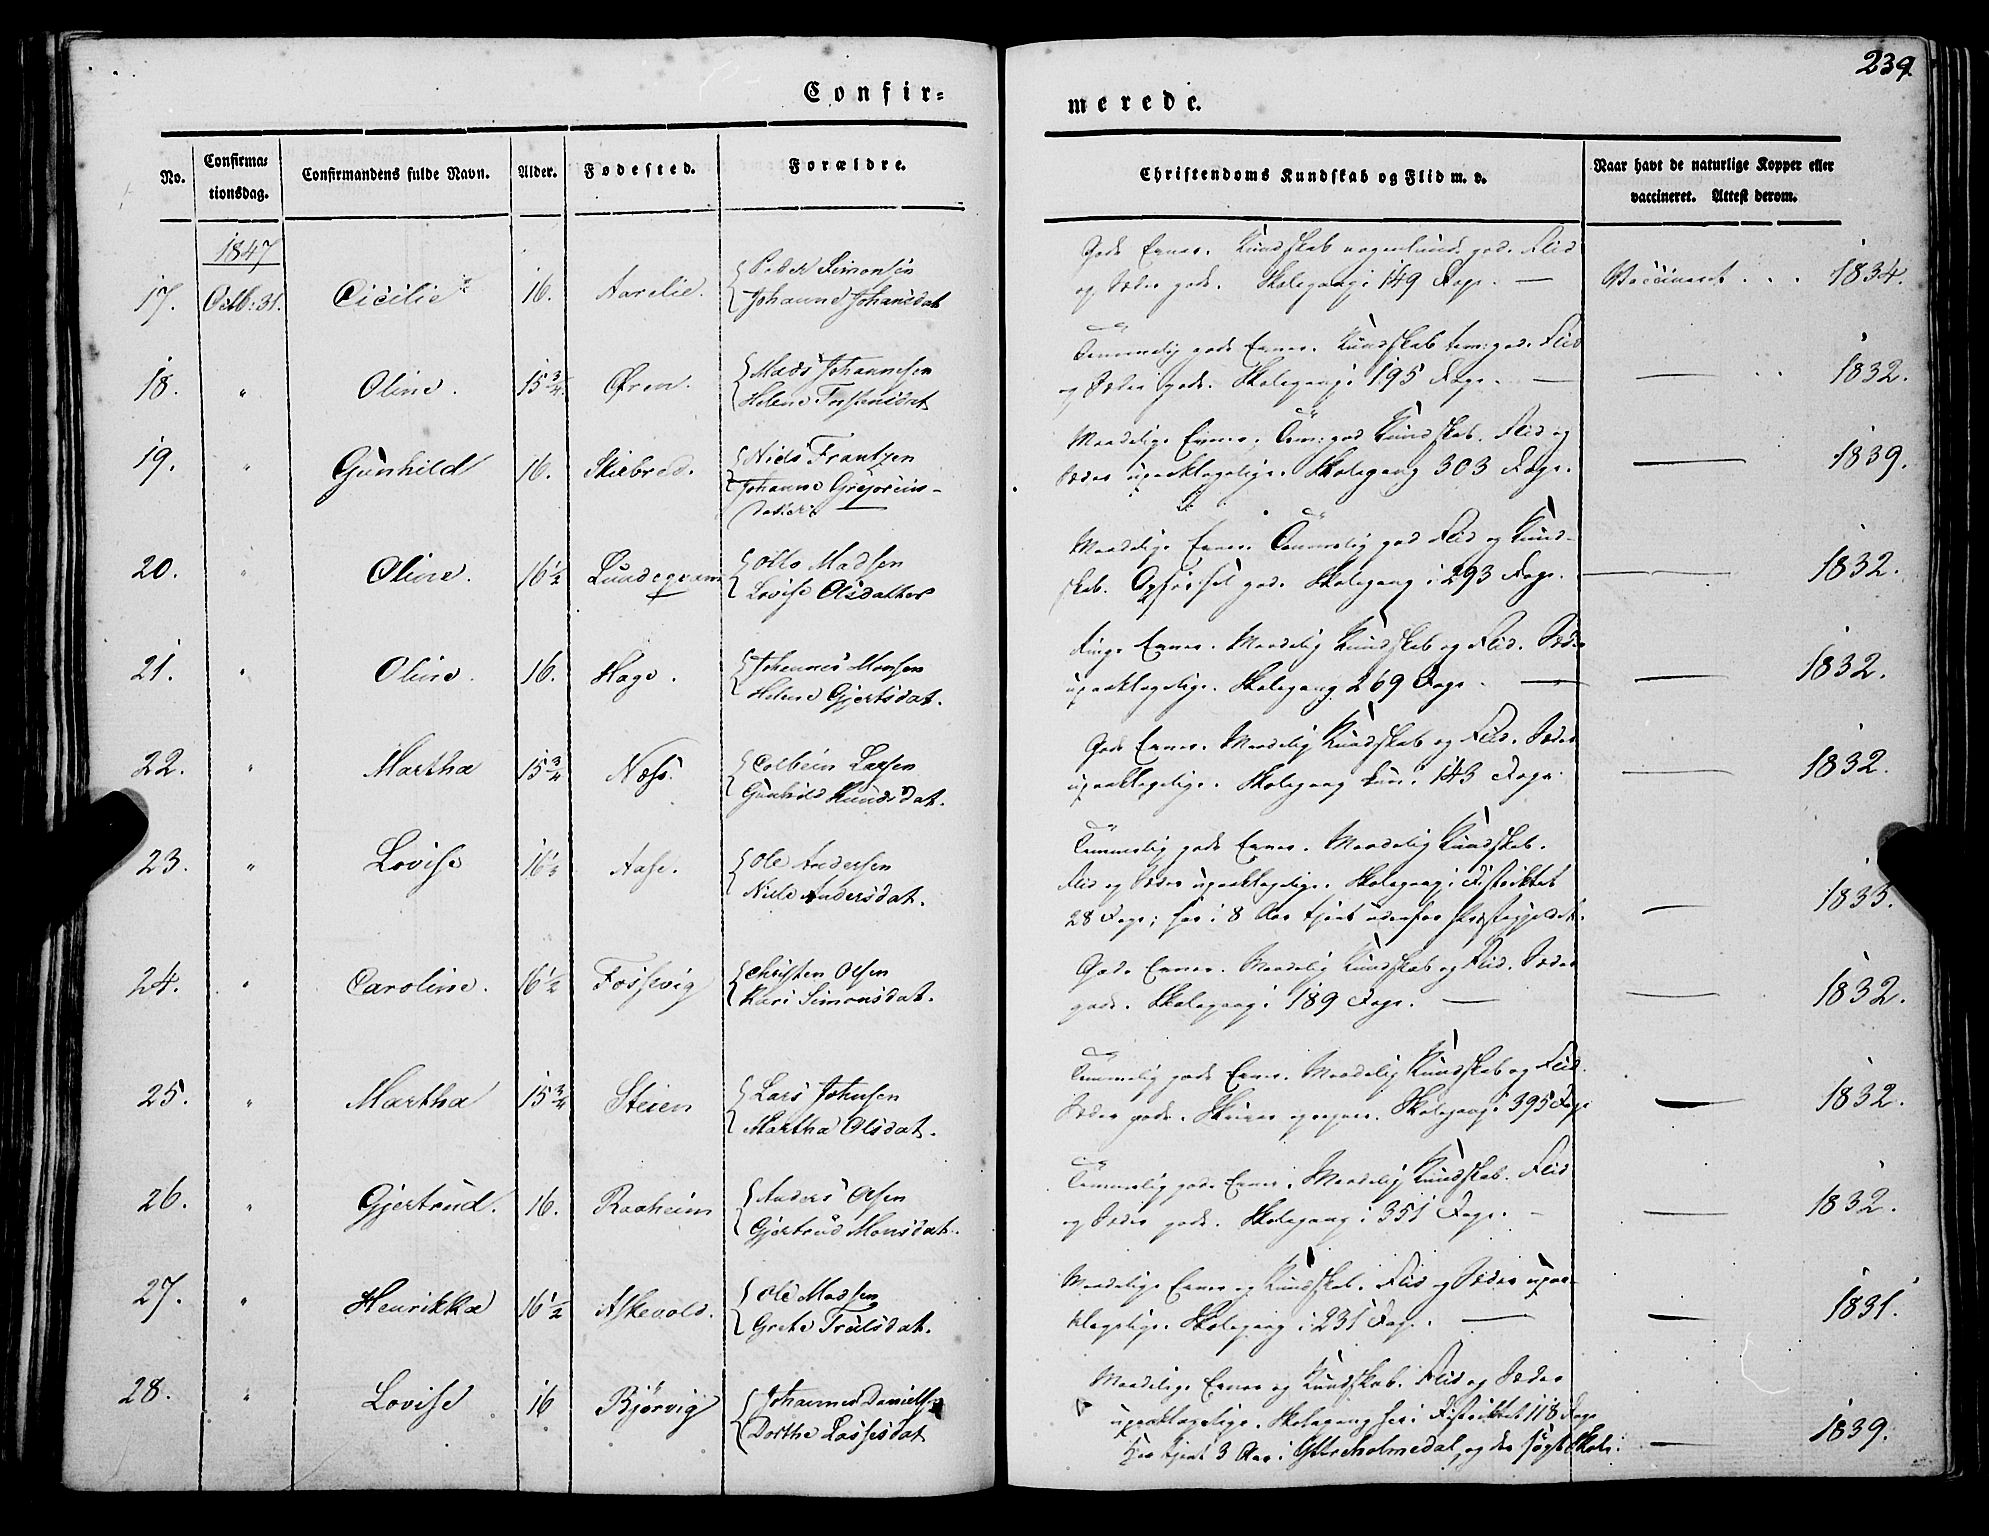 239
Confir-
merede.
No.
Confirma-
tionsdag.
Confirmandens fulde Navn.
Alder.
Fødested.
Forældre.
Christendoms Kundskab og Flid m. v.
Naar havt de naturlige Kopper eller
vaccineret. Attest derom.
1847
17. Octb: 31. Cicilie 16. Aarelie. Peder Simonsen
Johanne Johansdat
Gode Evner. Kundskab nogenlund god. Flid
og Sæder gode. Skolegang i 149 Dage. —
Vaccineret . . . 1834.
18. " Oline. 15 3/4. Øren. Mads Johannesen
Helene Torstensdat
Temmelig gode Evner. Kundskab tem: god. Flid
og Sæder gode. Skolegang i 195 Dage. —
— . . 1832.
19. " Gunhild 16. Skiebred. Niels Frantzen
Johanne Gregorius-
datter
Maadelige Evner. Tem: god Kundskab. Flid og
Sæder upaaklagelige. Skolegang 303 Dage.
— 1839.
20. " Oline. 16 1/2 Lundeqvam Otto Madsen
Lovise Olsdatter
Maadelige Evner. Temmelig god Flid og Kund-
skab. Opførsel god. Skolegang i 293 Dage.
— 1832.
21. " Oline. 16. Hage. Johannes Monsen
Helene Gjertsdat.
Ringe Evner. Maadelig Kundskab og Flid. Sæder
upaaklagelige. Skolegang 269 Dage. —
— 1832.
22. " Martha 15 3/4 Næss. Colbein Larsen
Gunhild Knudsdat.
Gode Evner. Maadelig Kundskab og Flid. Sæder
upaaklagelige. Skolegang kun i 143 Dage.
— 1832.
23. " Lovise 16 1/2 Aase. Ole Andersen
Nille Andersdat.
Temmelig gode Evner. Maadelig Kundskab.
Flid og Sæder upaaklagelige. Skolegang i Distriktet
28 Dage; har i 8 Aar tjent udenfor Præstegjeldet.
— 1833.
24. " Caroline. 16 1/2 Fossevig Christen Olsen
Kari Simonsdat.
Gode Evner. Maadelig Kundskab og Flid. Sæder
gode. Skolegang i 189 Dage. —
— 1832.
25. " Martha 15 3/4 Steien Lars Johnsen
Martha Olsdat.
Temmelig gode Evner. Maadelig Kundskab og Flid.
Sæder gode. Skolegang i 395 Dage
— 1832.
26. " Gjertrud. 16. Raaheim Anders Olsen
Gjertrud Monsdat.
Temmelig gode Evner. Maadelig Kundskab. Flid
og Sæder gode. Skolegang i 351 Dage. —
— 1832.
27. " Henrikka 16 1/2 Askevold. Ole Madsen
Grete Trulsdat.
Maadelige Evner og Kundskab. Flid og Sæder upaa-
klagelige. Skolegang i 231 Dag. —
— 1831.
28. " Lovise 16 Bjørvig Johannes Danielsen
Dorthe Lassesdat
Maadelige Evner og Kundskab. Flid og Sæder
upaaklagelige. Skolegang her i Distriktet 118 Dage
har tjent 3 Aar i Yttreholmedal, og der søgt Skole.
— 1839.